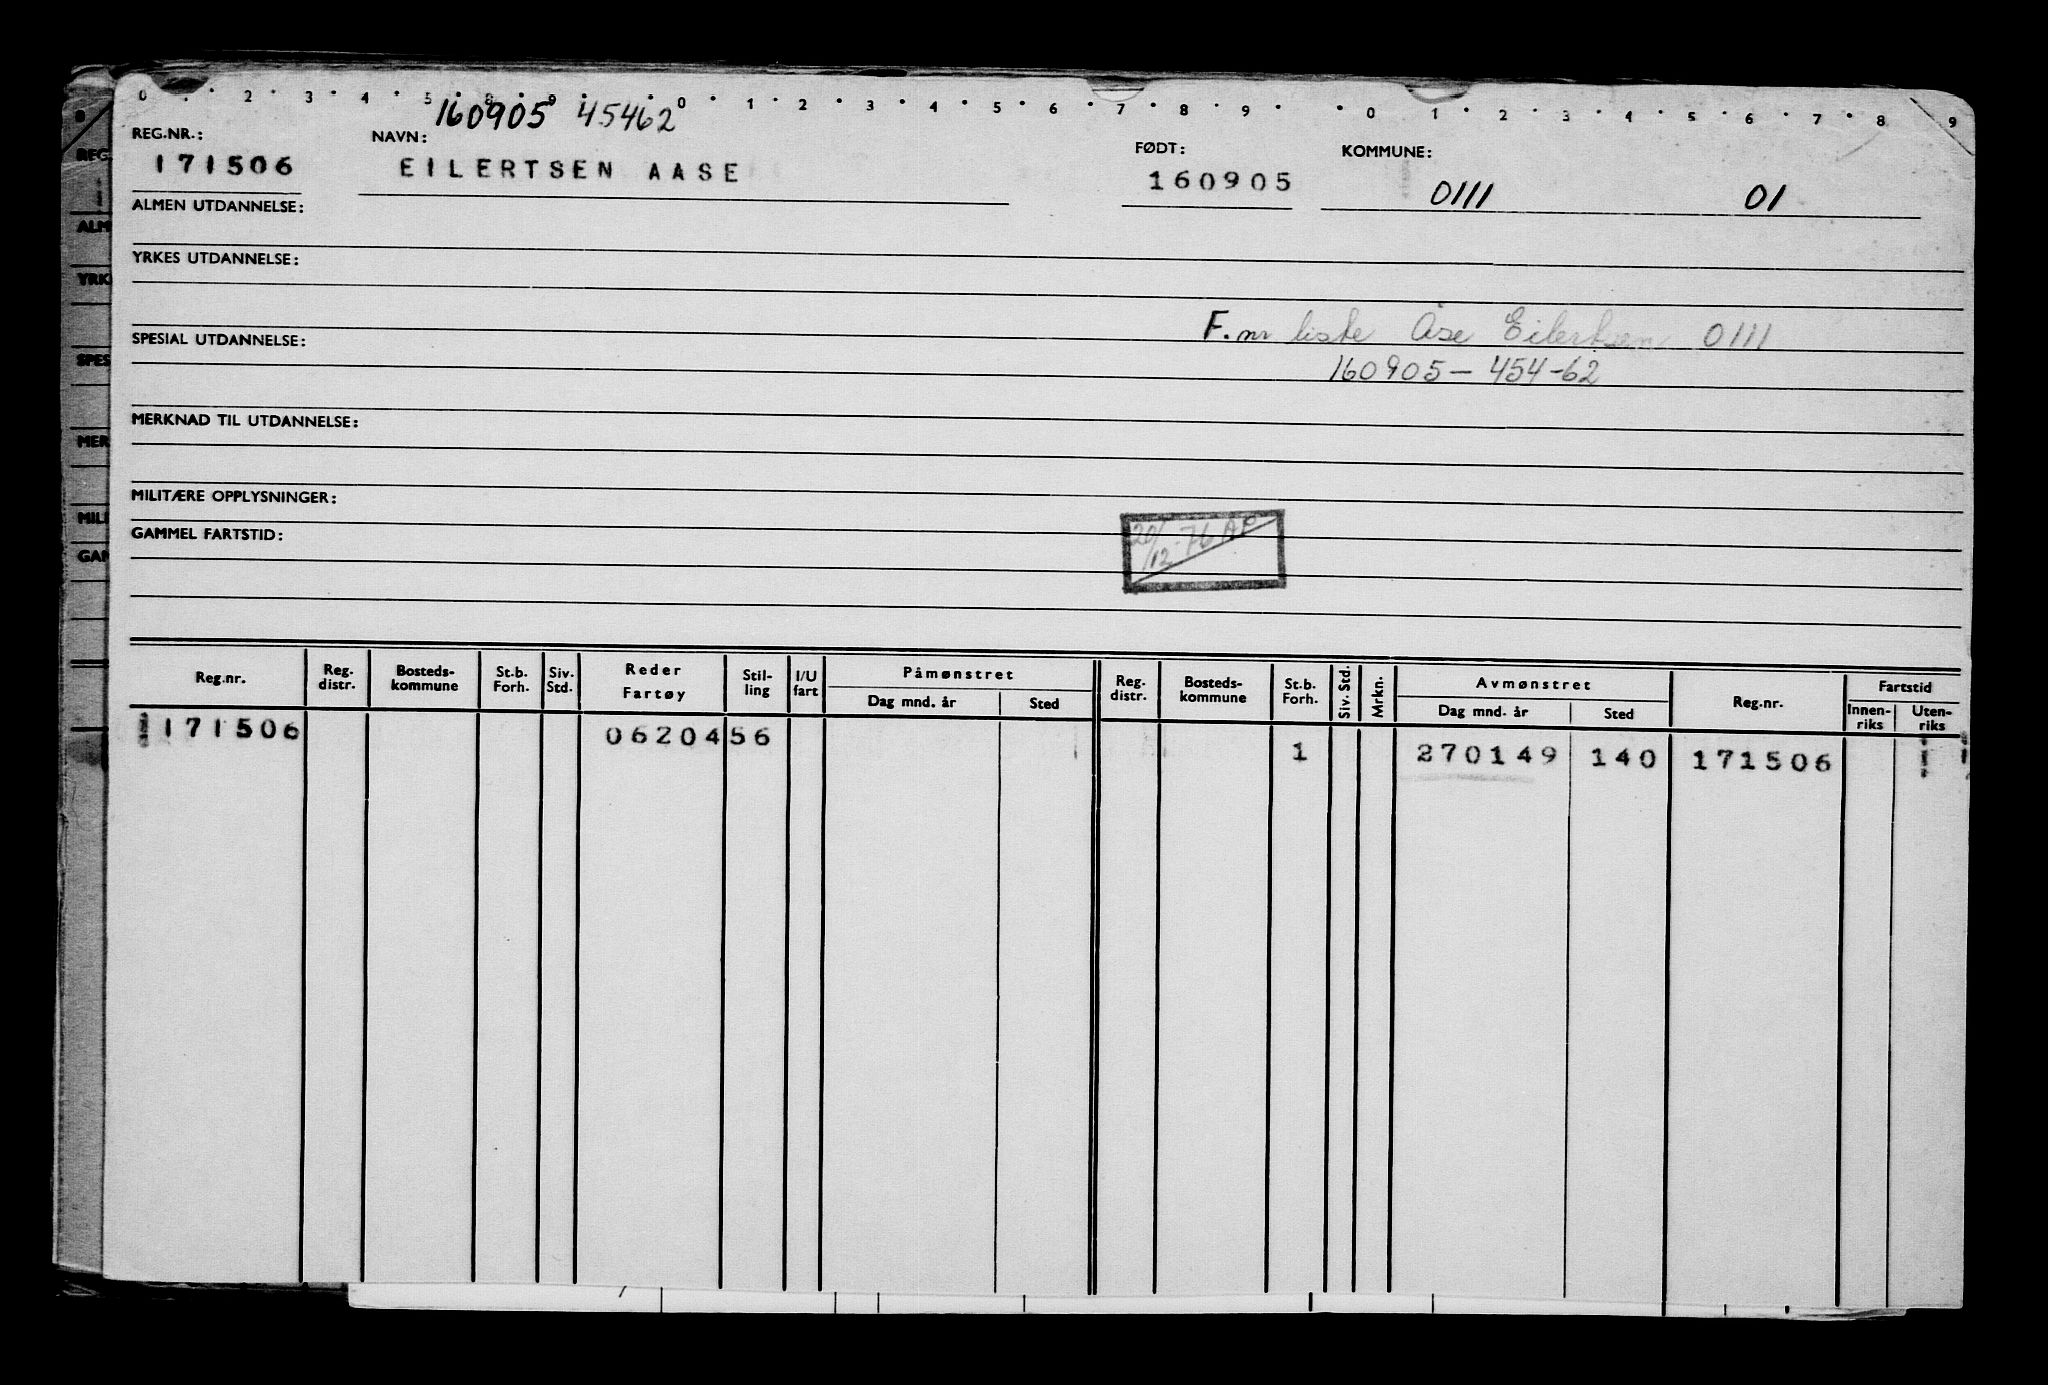 0 . . 2 . 3 . 4 . 5 . 8 . 9 . 0 . 1 . 2 . 3 . 4 . 5 . 6 . 7 . 8 . 9 . . 0 . 1 . 2 . 3 . 4 . 5 . 6 . 7 . 8 . 9
160905 45462
REG.NR.: NAVN: FØDT: KOMMUNE:
171506 EILERTSEN AASE 160905 0111 01
ALMEN UTDANNELSE:
YRKES UTDANNELSE:
F.nr liste Åse Eilertsen 0111
SPESIAL UTDANNELSE:
160905 – 454-62
MERKNAD TIL UTDANNELSE:
MILITÆRE OPPLYSNINGER:
GAMMEL FARTSTID:
20/12-76 AF
Reg.nr. Reg. distr. Bosteds-kommune St.b. Forh. Siv. Std. Reder Fartøy Stil-ling I/U fart Påmønstret Dag mnd. år Sted Reg. distr. Bosteds-kommune St.b. Forh. Siv. Std. Mrkn. Avmønstret Dag mnd. år Sted Reg.nr. Fartstid Innen-riks Uten-riks
171506 0620456 1 270149 140 171506